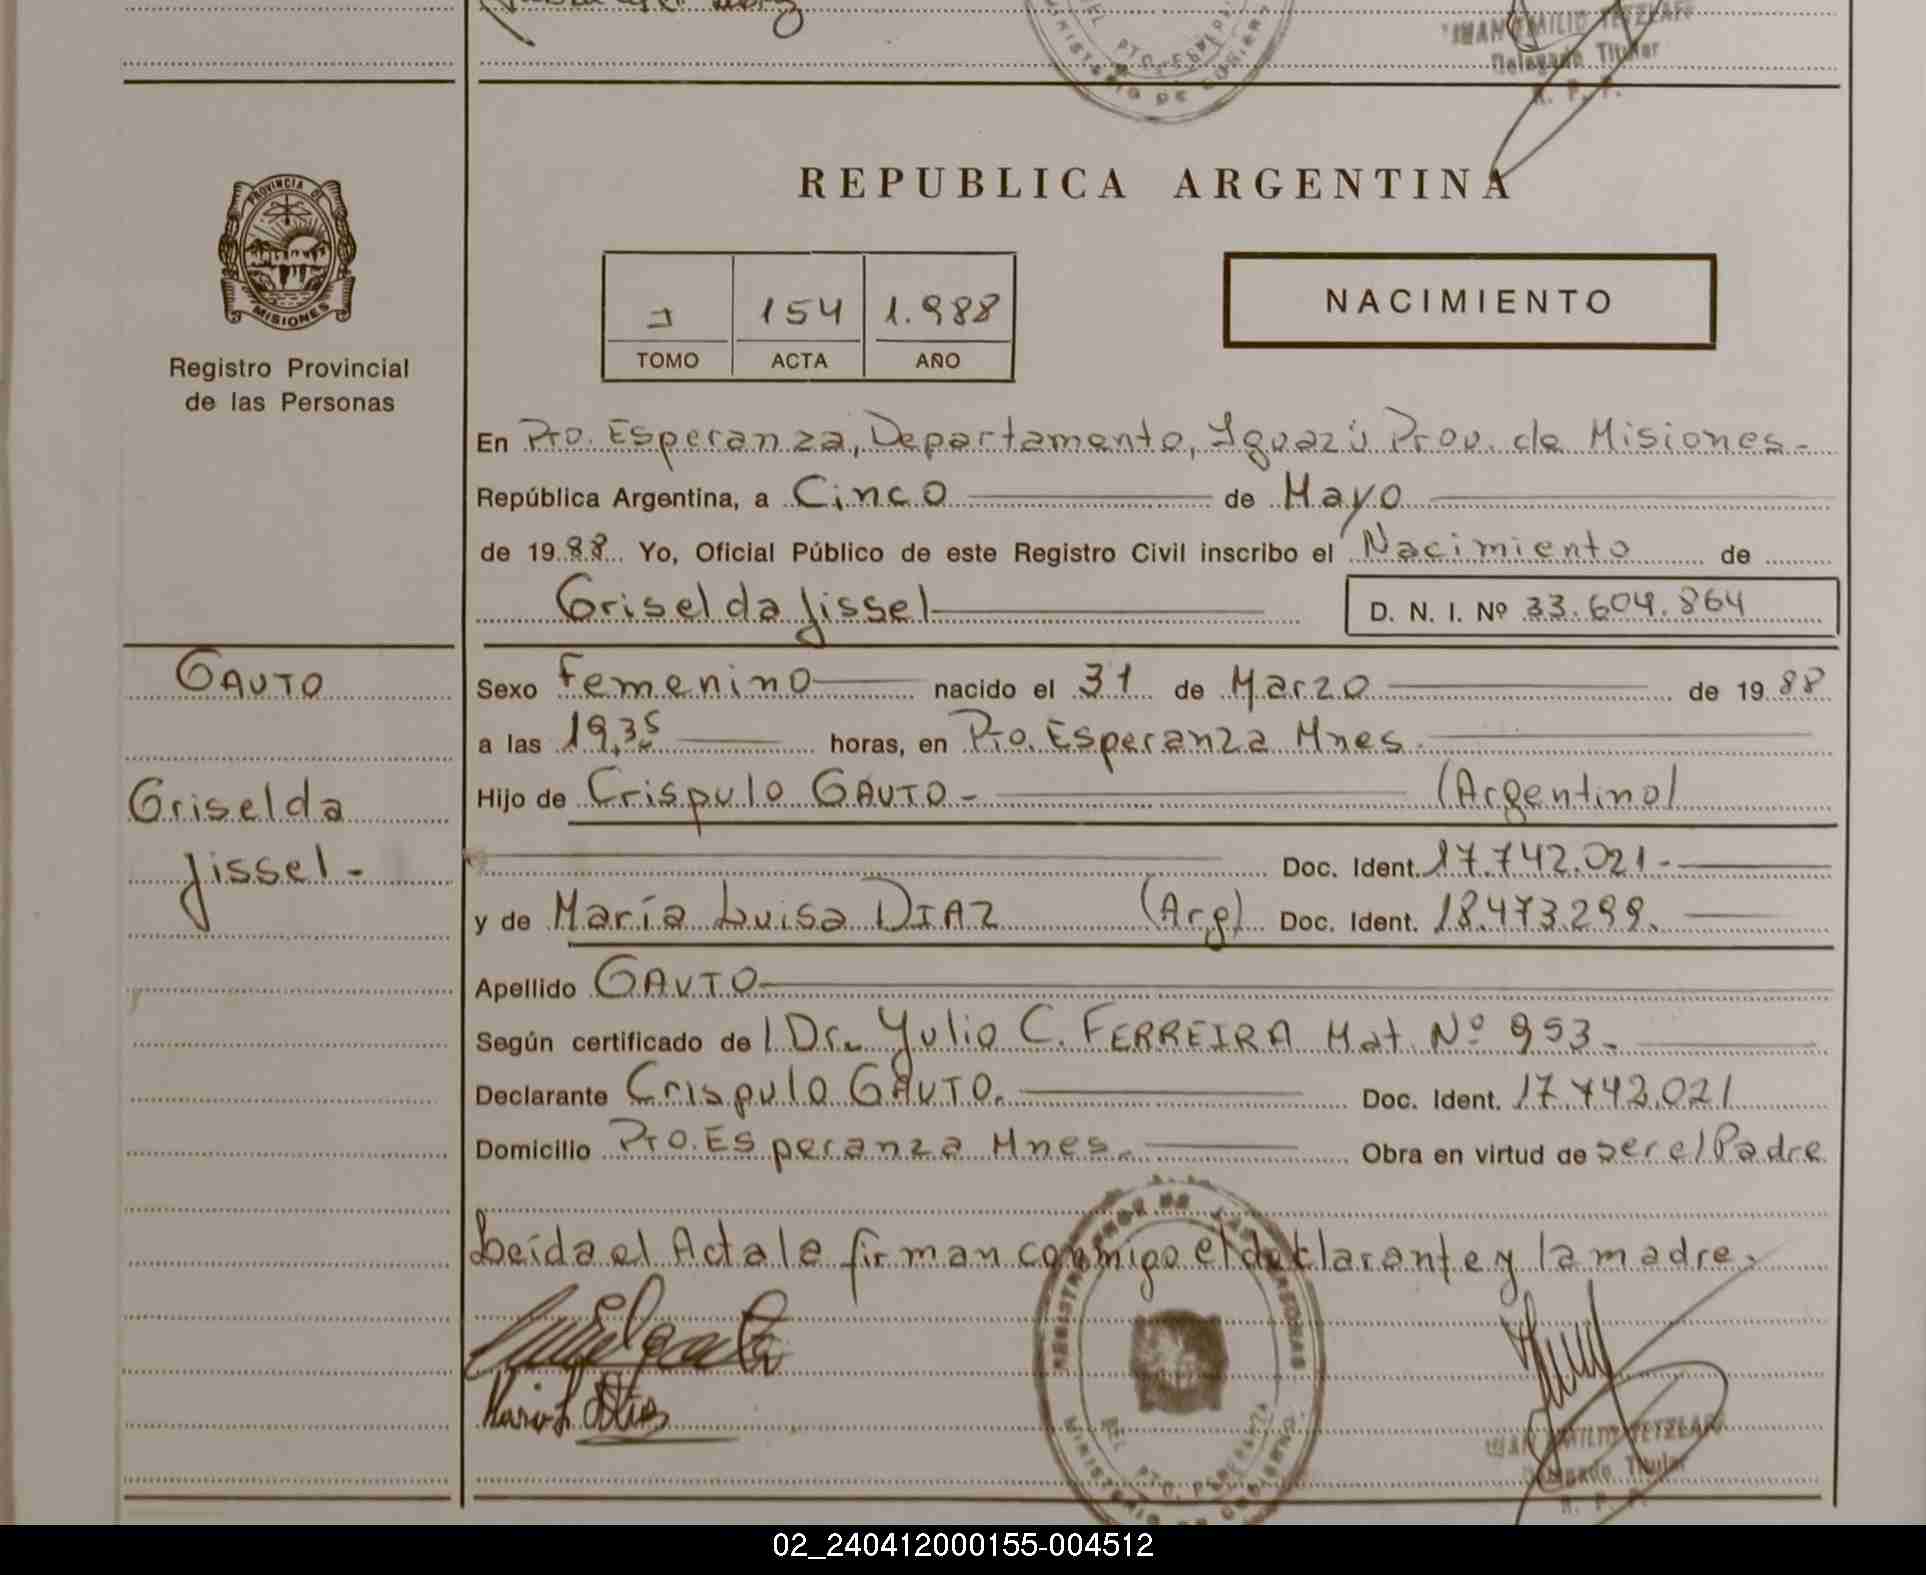 JUAN EMILIO TETZLAFF
Delegado Titular
R. P. P.
MINISTERIO DE GOBIERNO
PROVINCIA DE
MISIONES
Registro Provincial
de las Personas
REPUBLICA ARGENTINA
I 154 1.988
TOMO ACTA AÑO
NACIMIENTO
En Pto. Esperanza, Departamento, Iguazú Prov. de Misiones-
República Argentina, a Cinco de Mayo
de 1988 Yo, Oficial Público de este Registro Civil inscribo el Nacimiento de
Griselda Jissel D. N. I. Nº 33.604.864
GAUTO
Griselda
Jissel-
Sexo Femenino nacido el 31 de Marzo de 1988
a las 19,35 horas, en Pto. Esperanza Mnes.
Hijo de Crispulo GAUTO- (Argentino)
Doc. Ident. 17.742.021-
y de María Luisa DIAZ (Arg) Doc. Ident. 18.473.299.
Apellido GAUTO
Según certificado de l Dr. Yulio C. FERREIRA Mat. Nº 953.
Declarante Crispulo GAUTO. Doc. Ident. 17.742.021
Domicilio Pto. Esperanza Mnes. Obra en virtud de ser el Padre
Leída el Acta la firman conmigo el declarante y la madre.
REGISTRO PROV. DE LAS PERSONAS
MINISTERIO DE GOBIERNO
PTO. ESPERANZA
Maria L Dias
JUAN EMILIO TETZLAFF
Delegado Titular
R. P. P.
02_240412000155-004512